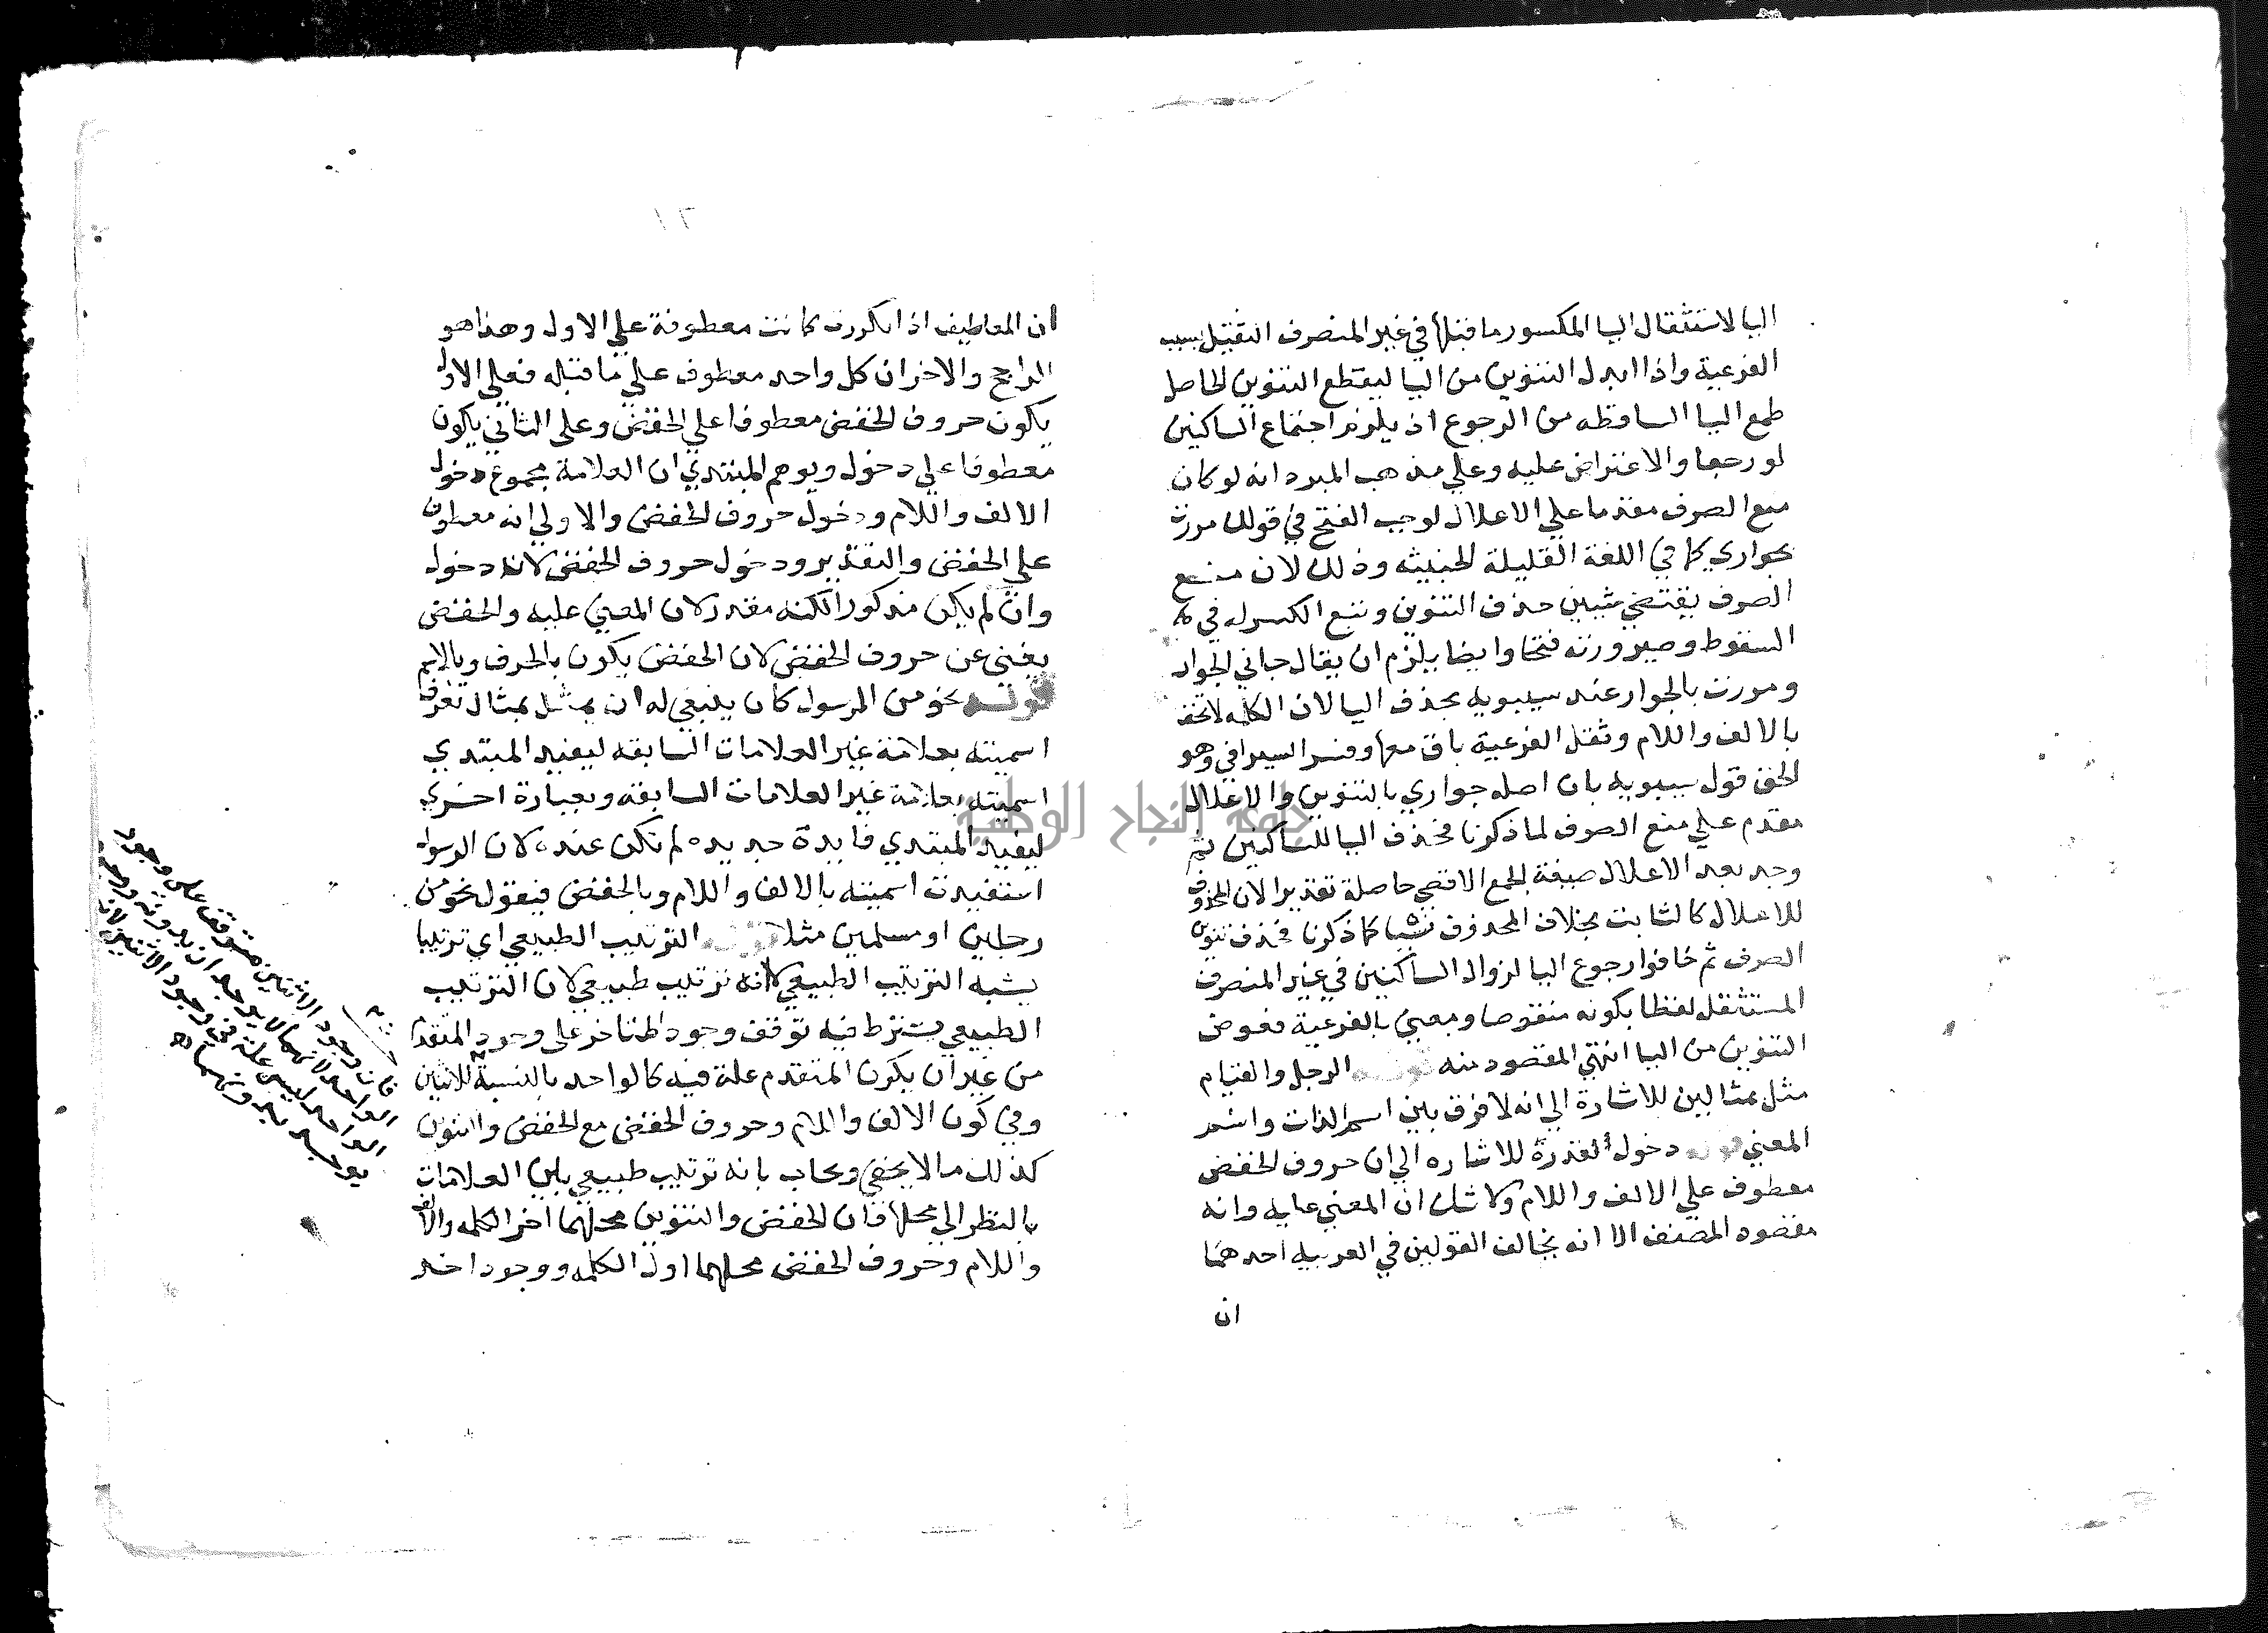 اليا لاستثقال اليا المكسور ما قبلها في غير المنصرف الثقيل بسبب
الفرعية واذا ابدل التنوين من اليا ليقطع التنوين الحاصل
طمع اليا الساقطه من الرجوع اذ يلزم اجتماع الساكنين
لو رجعا والاعتراض عليه وعلي مذهب المبرد انه لو كان
منع الصرف مقدما علي الاعلال لوجب الفتح في قولك مررت
بجواري كما في اللغة القليلة الخبيثه وذلك لان منع
الصرف يقتضي شيين حذف التنوين وتبع الكسر له في
السقوط وصيرورته فتحا وايضا يلزم ان يقال جاني الجوار
ومررت بالجوار عند سيبويه بحذف اليا لان الكلمه لا تخف
بالالف واللام وثقل الفرعية باق معها وفسر السيرافي وهو
الحق قول سيبويه بان اصله جواري بالتنوين والاعلال
مقدم علي منع الصرف لما ذكرنا فحذف اليا للساكنين ثم
وجد بعد الاعلال صيغة الجمع الاقصي حاصلة تقديرا لان المحذوف
للاعلال كالثابت بخلاف المحذوف نسيا كما ذكرنا فحذف تنوين
الصرف ثم خافوا رجوع اليا لزوال الساكنين في غير المنصرف
المستثقل لفظا بكونه منقوصا ومعني بالفرعية فعوض
التنوين من اليا انتهي المقصود منه قوله الرجل والقيام
مثل بمثالين للاشارة الي انه لا فرق بين اسم الذات واسم
المعني قوله دخول القدرة للاشاره الي ان حروف الخفض
معطوف علي الالف واللام ولا شك ان المعني عليه وانه
مقصود المصنف الا انه يخالف القولين في العربيه احدهما
ان
ان المعاطيف اذا تكررت كانت معطوفة علي الاول وهذا هو
الراجح والاخر ان كل واحد معطوف علي ما قبله فعلي الاول
يكون حروف الخفض معطوفا علي الخفض وعلي الثاني يكون
معطوفا علي دخول ويوهم المبتدي ان العلامة مجموع دخول
الالف واللام ودخول حروف الخفض والاولي انه معطوف
علي الخفض والتقدير ودخول حروف الخفض لان دخول
وان لم يكن مذكورا لكنه مقدر لان المعني عليه والخفض
يغني عن حروف الخفض لان الخفض يكون بالحرف وبالاسم
قوله نحو من الرسول كان ينبغي له ان يمثل بمثال تعرف
اسميته بعلامة غير العلامات السابقه ليفيد المبتدي
اسميته بعلامة غير العلامات السابقه وبعبارة اخري
ليفيد المبتدي فايدة جديده لم تكن عنده لان الرسول
استفيدت اسميته بالالف واللام وبالخفض فيقول نحو من
رجلين او مسلمين مثلا قوله الترتيب الطبيعي اي ترتيبا
يشبه الترتيب الطبيعي لا انه ترتيب طبيعي لان الترتيب
الطبيعي يشترط فيه توقف وجود المتاخر علي وجود المتقدم
من غير ان يكون المتقدم علة فيه كالواحد بالنسبة للاثنين
وفي كون الالف واللام وحروف الخفض مع الخفض والتنوين
كذلك ما لا يخفي ويجاب بانه ترتيب طبيعي بين العلامات
بالنظر الي محلها فان الخفض والتنوين محلهما اخر الكلمه والالف
واللام وحروف الخفض محلهما اول الكلمه ووجود اخر
فان وجود الاثنين متوقف علي وجود
الواحد لانهما لا يوجدان بدونه وجود
الواحد ليس علة في وجود الاثنين لانه
يوجد بدونهما اه
جامعة النجاح الوطنية